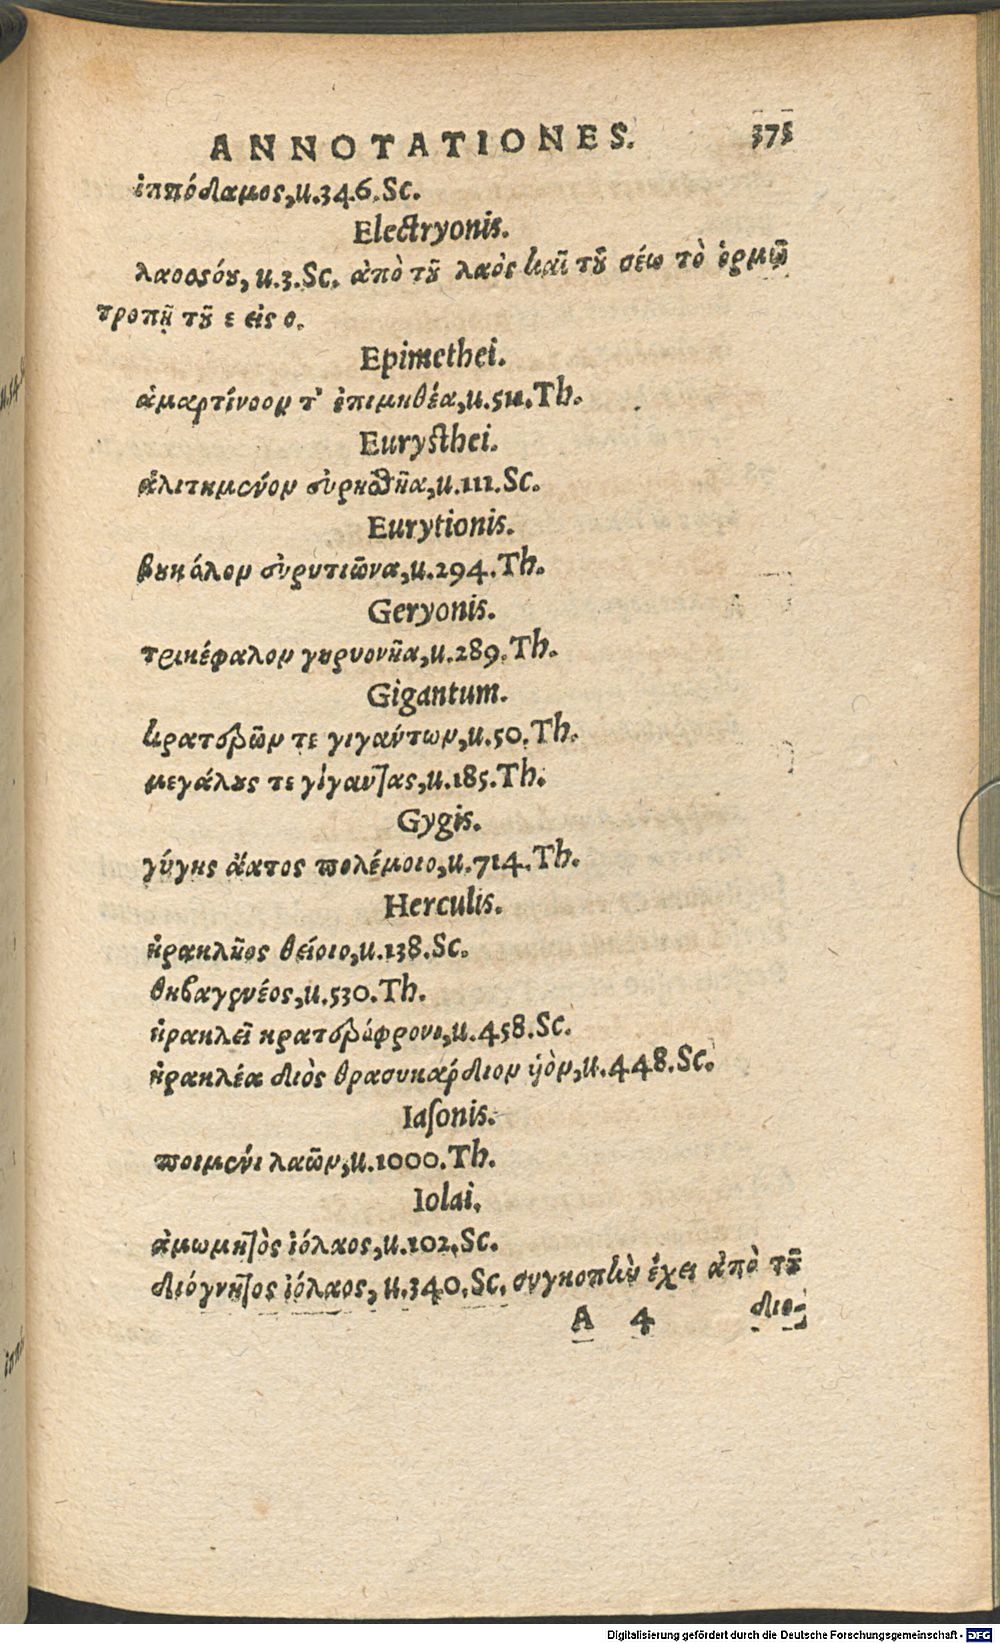 ANNOTATIONES. 375
ἱππόδαμος, u.346.Sc.
Electryonis.
λαοσσόου, u.3.Sc. ἀπὸ τοῦ λαὸς καὶ τοῦ σέω τὸ ὁρμῶ
τροπῇ τοῦ ε εἰς ο.
Epimethei.
ἁμαρτίνοον τ' ἐπιμηθέα, u.511.Th.
Eurysthei.
ἀλιτήμενον εὐρυσθῆα, u.111.Sc.
Eurytionis.
βουκόλον εὐρυτιῶνα, u.294.Th.
Geryonis.
τρικέφαλον γηρυονῆα, u.289.Th.
Gigantum.
κρατερῶν τε γιγάντων, u.50.Th.
μεγάλους τε γίγαντας, u.185.Th.
Gygis.
γύγης ἄατος πολέμοιο, u.714.Th.
Herculis.
ἡρακλῆος θείοιο, u.138.Sc.
θηβαγενέος, u.530.Th.
ἡρακλεῖ κρατερόφρονι, u.458.Sc.
ἡρακλέα διὸς θρασυκάρδιον υἱὸν, u.448.Sc.
Iasonis.
ποιμένι λαῶν, u.1000.Th.
Iolai.
ἀμώμητος ἰόλαος, u.102.Sc.
διόγνητος ἰόλαος, u.340.Sc. συγκοπὴν ἔχει ἀπὸ τοῦ
A 4 διο-
Digitalisierung gefördert durch die Deutsche Forschungsgemeinschaft - DFG